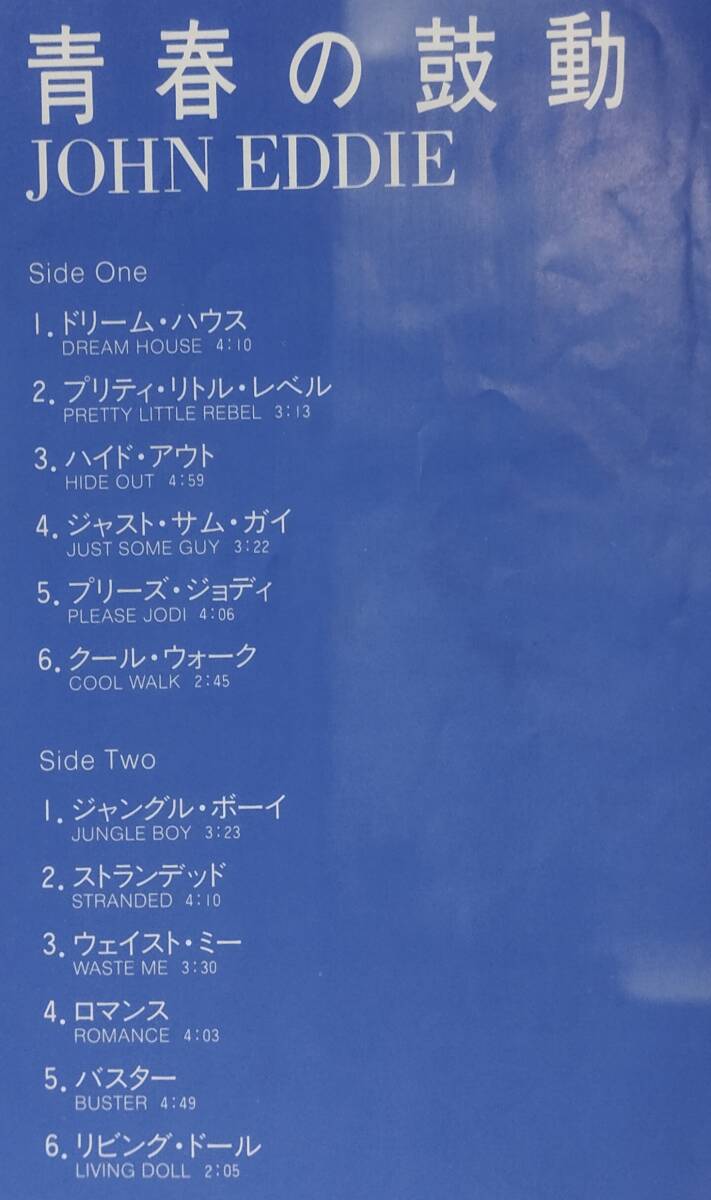 青春の鼓動
JOHN EDDIE
Side One
1.ドリーム・ハウス
DREAM HOUSE 4:10
2.プリティ・リトル・レベル
PRETTY LITTLE REBEL 3:13
3.ハイド・アウト
HIDE OUT 4:59
4.ジャスト・サム・ガイ
JUST SOME GUY 3:22
5.プリーズ・ジョディ
PLEASE JODI 4:06
6.クール・ウォーク
COOL WALK 2:45
Side Two
1.ジャングル・ボーイ
JUNGLE BOY 3:23
2.ストランデッド
STRANDED 4:10
3.ウェイスト・ミー
WASTE ME 3:30
4.ロマンス
ROMANCE 4:03
5.バスター
BUSTER 4:49
6.リビング・ドール
LIVING DOLL 2:05